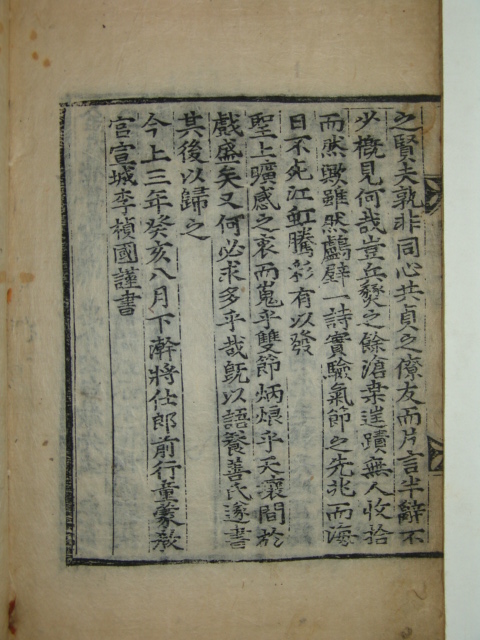 之賢夫孰非同心共貞之僚友而片言半辭不
少概見何哉豈兵燹之餘滄桒逨蹟無人收拾
而然歟雖然鸕壁一詩實驗氣節之先兆而海
日不死江虹騰彩有以發
聖上曠感之衷而嵬乎雙節炳烺乎天壤間於
戲盛矣又何必求多乎哉旣以語養善氏遂書
其後以歸之
今上三年癸亥八月下澣將仕郎前行童蒙敎
官宣城李楨國謹書